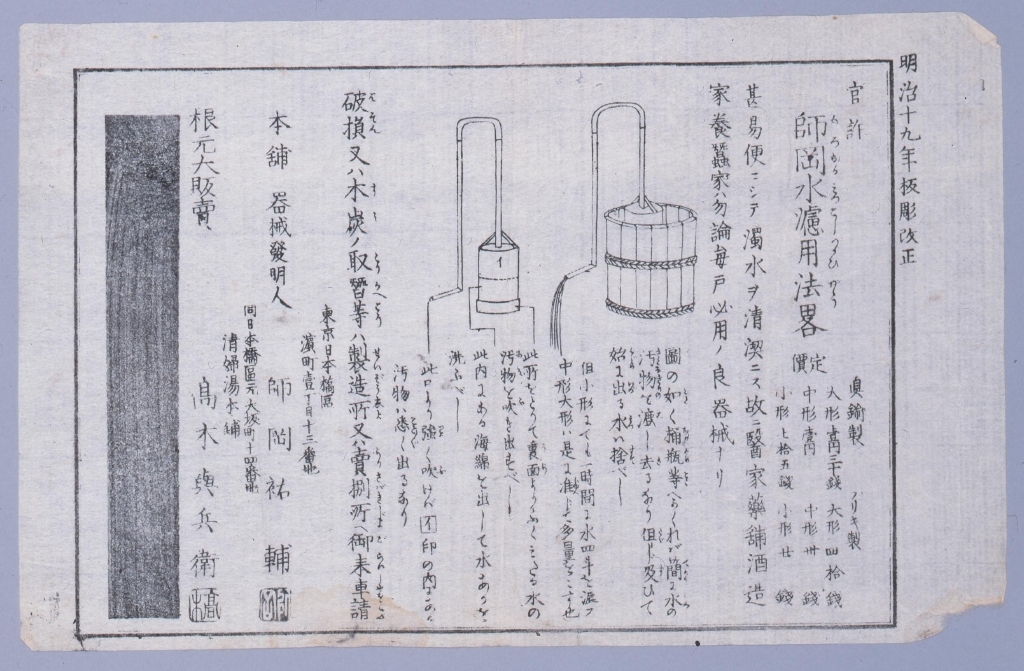 明治十九年板彫改正
官許
師岡水濾用法畧
定價
眞鍮製
大形壹圓三十錢
中形壹圓
小形七拾五錢
ブリキ製
大形四拾錢
中形卅錢
小形廿錢
甚易便ニシテ濁水ヲ清潔ニス故ニ醫家藥舗酒造
家養蠶家ハ勿論毎戸必用ノ良器械ナリ
圖の如く桶瓶等へおくれバ筒に水の
汚物を濾し去るなり但し及びて
始に出る水ハ捨べし
但小形にても一時間に水四斗を漉ス
中形大形ハ是に準じて多量なること也
此所をとりて裏面より
汚物を吹き出すべし
此内にある海綿を出して水にて
洗ふべし
此口より強く吹けバ
印の内にある
汚物ハ悉く出るなり
破損又ハ木炭ノ取替等ハ製造所又ハ賣捌所ヘ御来車請
東京日本橋區
濱町壹丁目十三番地
本舗 器械發明人 師岡祐輔
同日本橋區元大坂町十四番地
清婦湯本舗
根元大販賣 髙木與兵衛